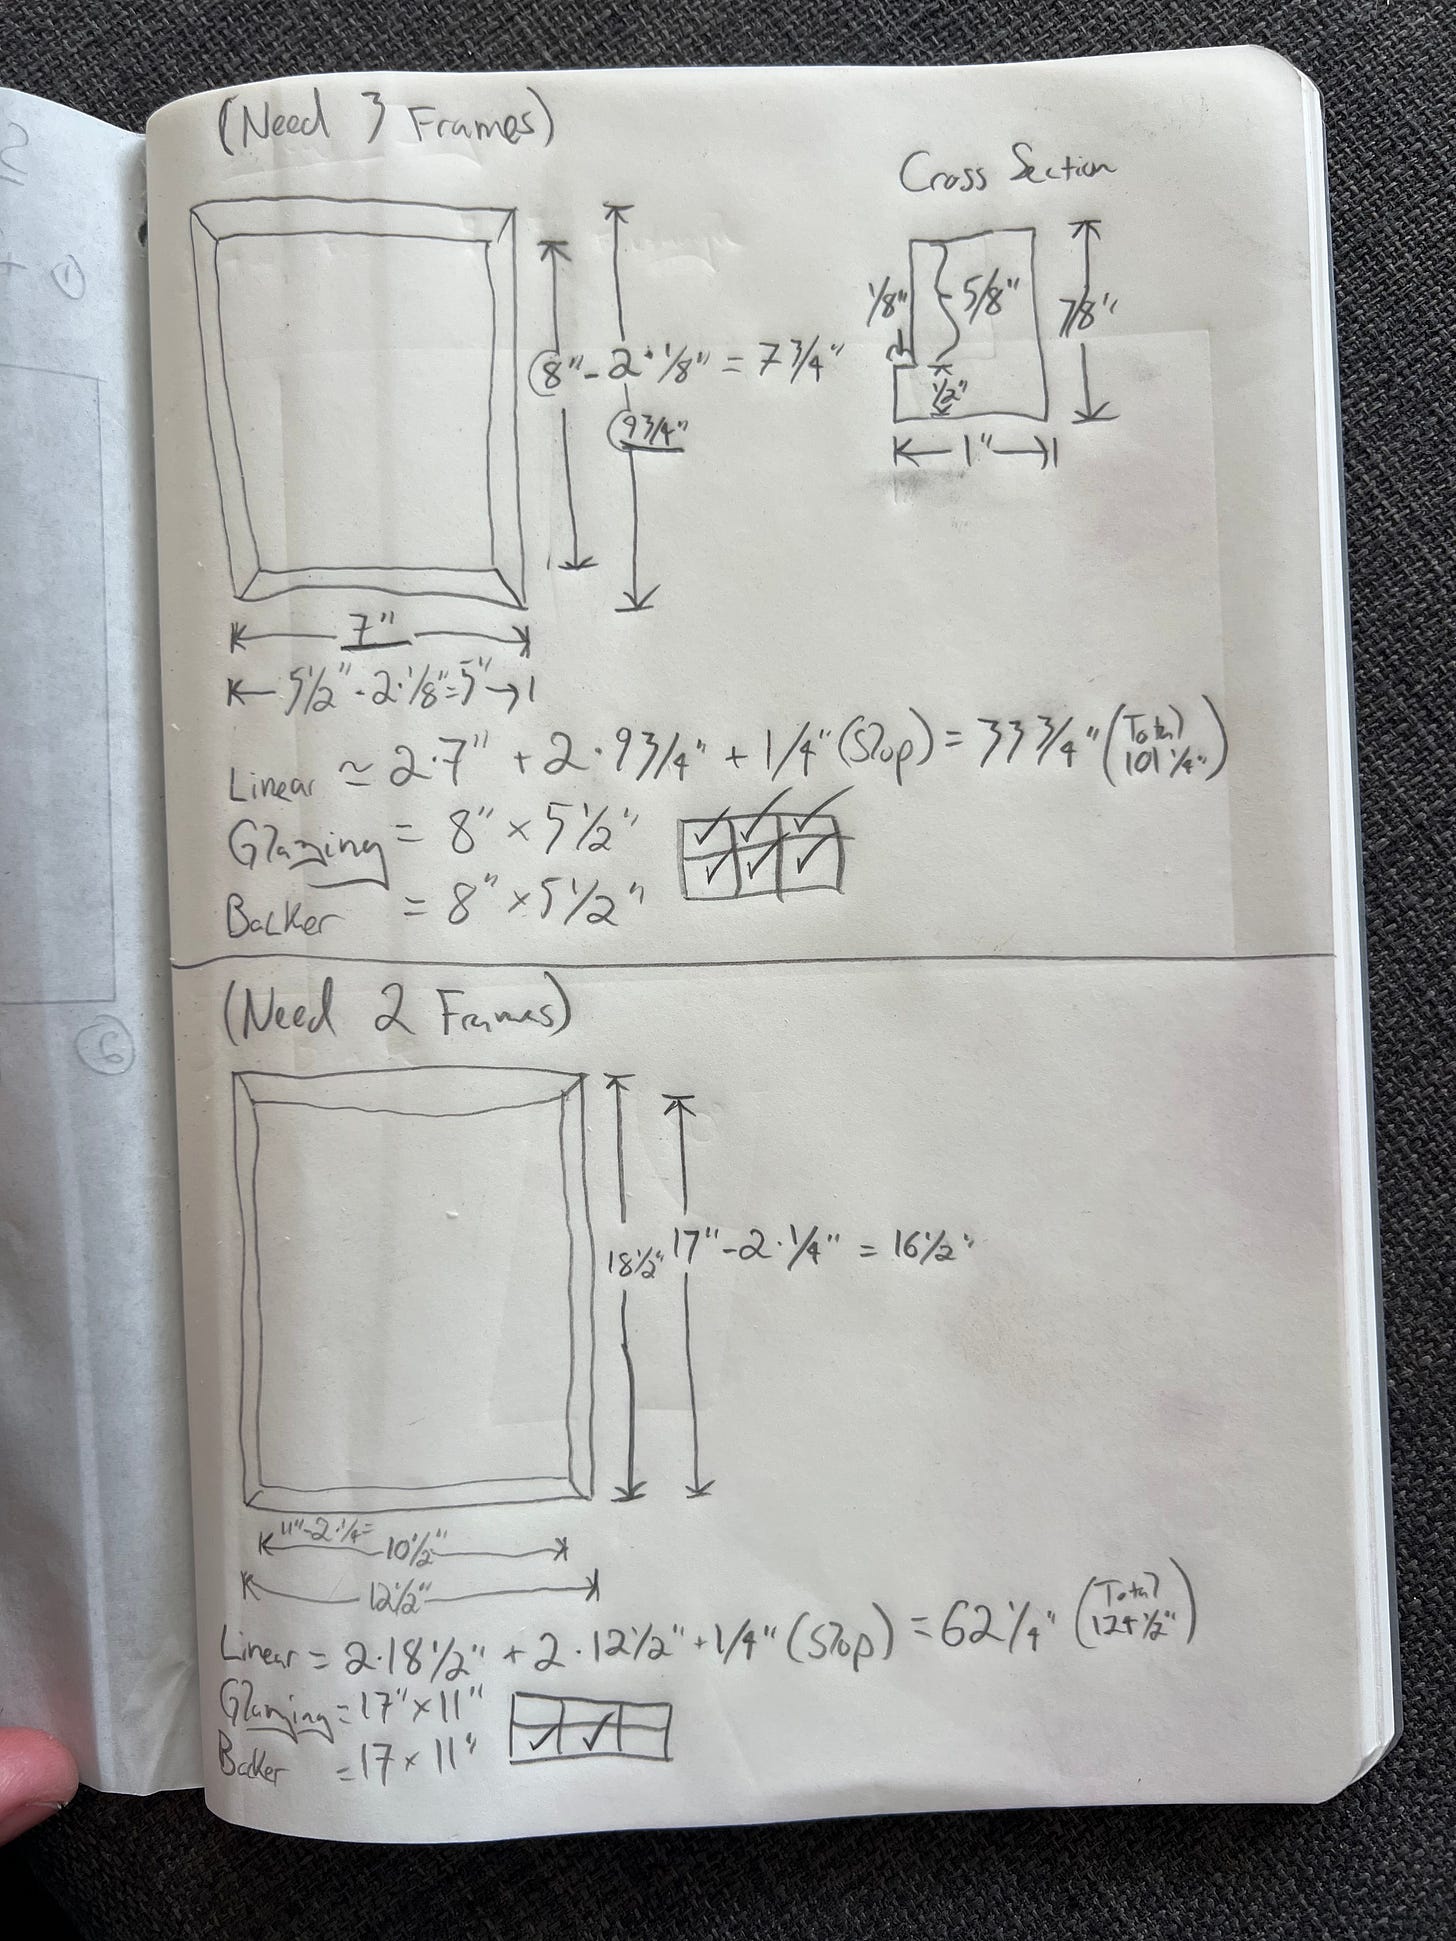 (Need 3 Frames)
Cross Section
1/8"
5/8"
7/8"
1/2"
1"
8" - 2 · 1/8" = 7 3/4"
9 3/4"
7"
5 1/2" - 2 · 1/8" = 5"
Linear ≃ 2·7" + 2·9 3/4" + 1/4" (Slop) = 33 3/4" (Total 101 1/4")
Glazing = 8" × 5 1/2"
Backer = 8" × 5 1/2"
(Need 2 Frames)
18 1/2"
17" - 2 · 1/4" = 16 1/2"
11" - 2 · 1/4 =
10 1/2"
12 1/2"
Linear = 2·18 1/2" + 2·12 1/2" + 1/4" (Slop) = 62 1/4" (Total 124 1/2")
Glazing = 17" × 11"
Backer = 17 × 11"
6